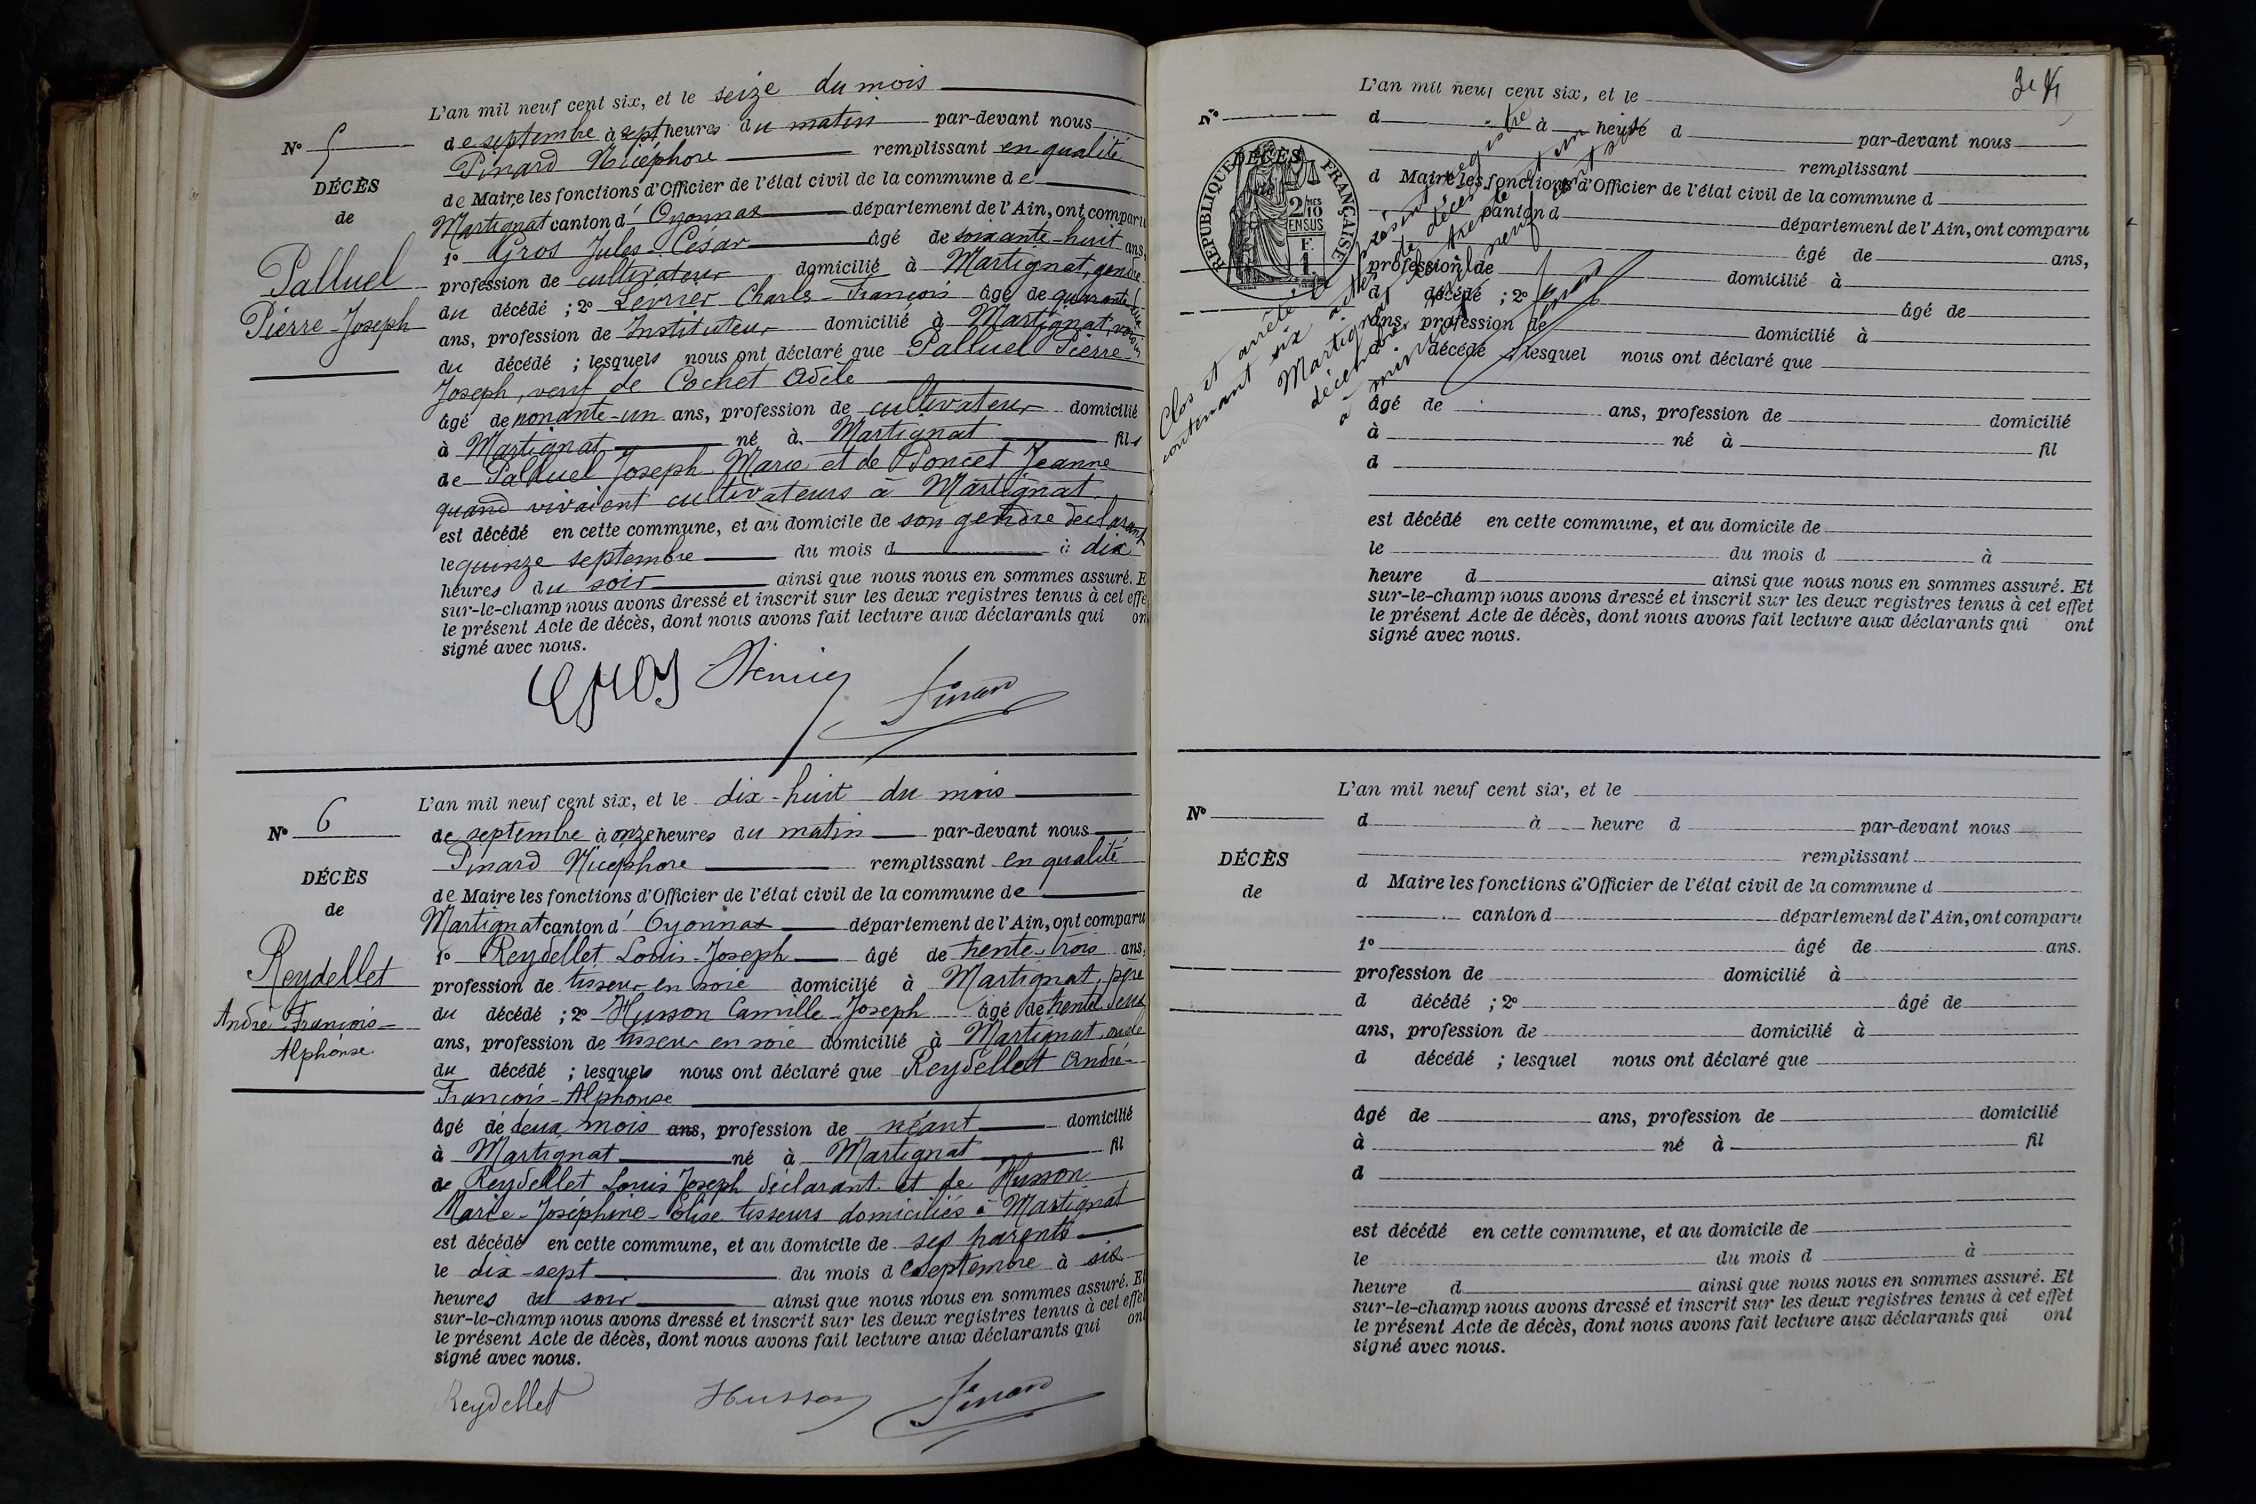 L'an mil neuf cent six, et le seize du mois
N° 5
de septembre à sept heures du matin par-devant nous
Pinard Nicéphore remplissant en qualité
DÉCÈS
de Maire les fonctions d'Officier de l'état civil de la commune de
de
Martignat canton d'Oyonnax département de l'Ain, ont comparu
1° Gros Jules-César âgé de soixante-huit ans,
Palluel
profession de cultivateur domicilié à Martignat, gendre
Pierre-Joseph
du décédé ; 2° Charles-François âgé de quarante-
ans, profession de Instituteur domicilié à Martignat, voisin
du décédé ; lesquels nous ont déclaré que Palluel Pierre-
Joseph, veuf de Cochet Adèle
âgé de nonante-un ans, profession de cultivateur domicilié
à Martignat né à Martignat fils
de Palluel Joseph-Marie et de Poncet Jeanne
quand vivaient cultivateurs à Martignat.
est décédé en cette commune, et au domicile de son gendre déclarant
le quinze septembre du mois d à dix
heures du soir ainsi que nous nous en sommes assuré. E
sur-le-champ nous avons dressé et inscrit sur les deux registres tenus à cet effe
le présent Acte de décès, dont nous avons fait lecture aux déclarants qui on
signé avec nous.
Gros Pinard
L'an mil neuf cent six, et le dix-huit du mois
N° 6
de septembre à onze heures du matin par-devant nous
Pinard Nicéphore remplissant en qualité
DÉCÈS
de Maire les fonctions d'Officier de l'état civil de la commune de
de
Martignat canton d'Oyonnax département de l'Ain, ont comparu
1° Reydellet Louis-Joseph âgé de trente-trois ans,
Reydellet
profession de tisseur en soie domicilié à Martignat, père
André-François-
du décédé ; 2° Husson Camille-Joseph âgé de trente deux
Alphonse.
ans, profession de tisseur en soie domicilié à Martignat, oncle
du décédé ; lesquels nous ont déclaré que Reydellet André-
François-Alphonse
âgé de deux mois ans, profession de néant domicilié
à Martignat né à Martignat fil
de Reydellet Louis Joseph déclarant et de Husson
Marie-Joséphine-Élise tisseurs domiciliés à Martignat
est décédé en cette commune, et au domicile de ses parents
le dix-sept du mois de Septembre à six
heures du soir ainsi que nous nous en sommes assuré. Et
sur-le-champ nous avons dressé et inscrit sur les deux registres tenus à cet effet
le présent Acte de décès, dont nous avons fait lecture aux déclarants qui ont
signé avec nous.
Reydellet Husson Pinard
L'an mil neuf cent six, et le
N°
d à heure d par-devant nous
remplissant
DÉCÈS
RÉPUBLIQUE FRANÇAISE
2/10mes EN SUS
d Maire les fonctions d'Officier de l'état civil de la commune d
canton d département de l'Ain, ont comparu
âgé de ans,
profession de domicilié à
d décédé ; 2° âgé de
ans, profession de domicilié à
d décédé ; lesquel nous ont déclaré que
Clos et arrêté le présent registre
contenant six actes de décès
Martignat le trente et un
décembre mil neuf cent six
à minuit
Pinard
âgé de ans, profession de domicilié
à né à fil
d
est décédé en cette commune, et au domicile de
le du mois d à
heure d ainsi que nous nous en sommes assuré. Et
sur-le-champ nous avons dressé et inscrit sur les deux registres tenus à cet effet
le présent Acte de décès, dont nous avons fait lecture aux déclarants qui ont
signé avec nous.
L'an mil neuf cent six, et le
N°
d à heure d par-devant nous
remplissant
DÉCÈS
d Maire les fonctions d'Officier de l'état civil de la commune d
de
canton d département de l'Ain, ont comparu
1° âgé de ans.
profession de domicilié à
d décédé ; 2° âgé de
ans, profession de domicilié à
d décédé ; lesquel nous ont déclaré que
âgé de ans, profession de domicilié
à né à fil
d
est décédé en cette commune, et au domicile de
le du mois d à
heure d ainsi que nous nous en sommes assuré. Et
sur-le-champ nous avons dressé et inscrit sur les deux registres tenus à cet effet
le présent Acte de décès, dont nous avons fait lecture aux déclarants qui ont
signé avec nous.